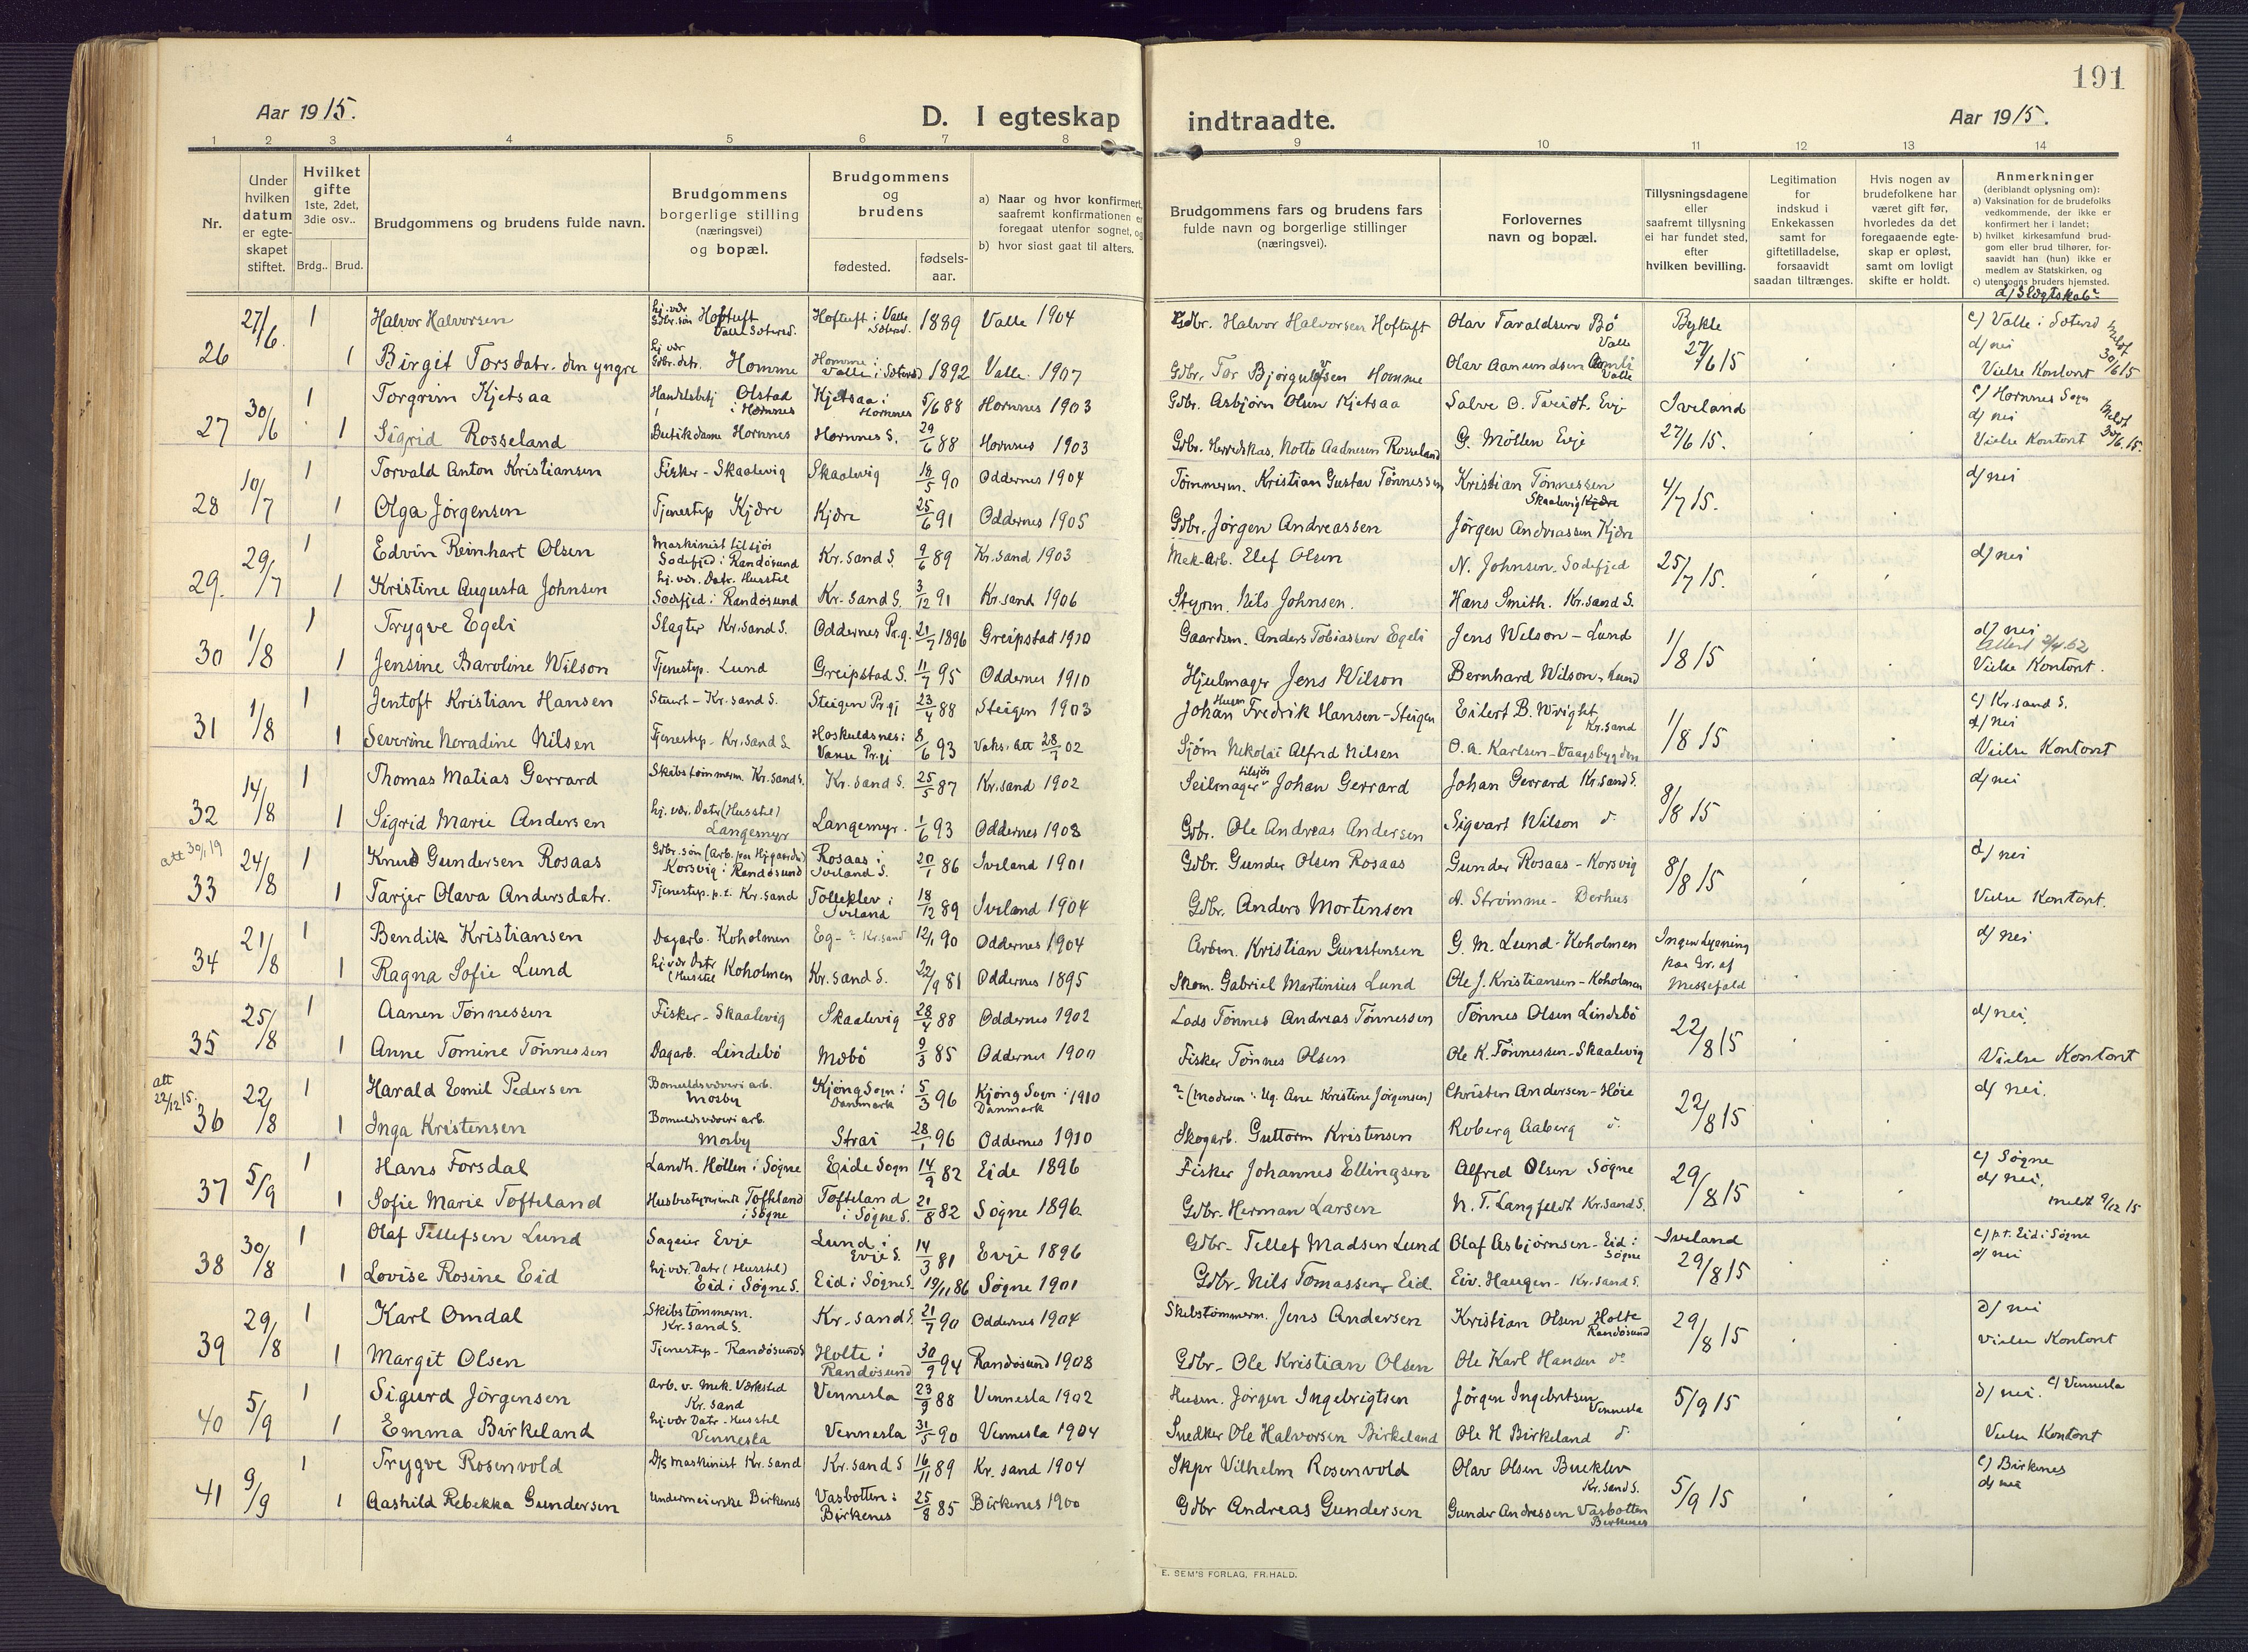 191
Aar 1915.
D. I egteskap indtraadte.
Aar 1915.
1 2 3 4 5 6 7 8 9 10 11 12 13 14
Nr.
Under hvilken datum er egte-skapet stiftet.
Hvilket gifte 1ste, 2det, 3die osv..
Brdg.. Brud.
Brudgommens og brudens fulde navn.
Brudgommens borgerlige stilling (næringsvei) og bopæl.
Brudgommens og brudens
fødested.
fødsels-aar.
a) Naar og hvor konfirmert, saafremt konfirmationen er foregaat utenfor sognet, og
b) hvor sidst gaat til alters.
Brudgommens fars og brudens fars fulde navn og borgerlige stillinger (næringsvei).
Forlovernes navn og bopæl.
Tillysningsdagene eller saafremt tillysning ei har fundet sted, efter hvilken bevilling.
Legitimation for indskud i Enkekassen samt for giftetilladelse, forsaavidt saadan tiltrænges.
Hvis nogen av brudefolkene har været gift før, hvorledes da det foregaaende egte-skap er opløst, samt om lovligt skifte er holdt.
Anmerkninger (deriblandt oplysning om):
a) Vaksination for de brudefolks vedkommende, der ikke er konfirmert her i landet;
b) hvilket kirkesamfund brud-gom eller brud tilhører, for-saavidt han (hun) ikke er medlem av Statskirken, og
c) utensogns bruders hjemsted.
d) Slegtskab
26 27/6. 1 Halvor Halvorsen hj. vær Gdbr. søn Hoftuft Valle Sætersd. Hoftuft i Valle Sætersd. 1889 Valle 1904 Gdbr. Halvor Halvorsen Hoftuft Olav Taraldsen Bø Valle Bykle 27/6 15 c) Valle i Sætersd d) nei
1 Birgit Torsdatr. den yngre hj vær Gdbr. dtr. Homme Homme i Valle i Sætersd 1892 Valle 1907 Gdbr. Tor Bjørgulfsen Homme Olav Aanundsen Valle Vielse Kontort Meldt 30/6 15
27 30/6 1 Torgrim Kjetsaa Handelsbetj Olstad i Hornnes Kjetsaa i Hornnes 5/6 88 Hornnes 1903 Gdbr. Asbjørn Olsen Kjetsaa Salve O. Tveidt. Evje Iveland 27/6 15. c) Hornnes Sogn d) nei
1 Sigrid Rosseland Butikdame Hornnes Hornnes S. 29/6 88 Hornnes 1903 Gdbr. Herredskas. Notto Aadnesen Rosseland G. Möllen Evje Vielse Kontort Meldt 30/6. 15.
28 10/7 1 Torvald Anton Kristiansen Fisker - Skaalevig Skaalevig 18/5 90 Oddernes 1904 Tømmerm. Kristian Gustav Tønnessen Kristian Tønnessen Skaalevig Kjære 4/7 15. d) nei
1 Olga Jørgensen Tjenestep Kjære Kjære 25/6 91 Oddernes 1905 Gdbr. Jørgen Andreassen Jørgen Andreassen Kjære
29. 29/7 1 Edvin Reinhart Olsen Maskinist tilsjøs Sodefjed i Randøsund Kr. Sand S. 9/6 89 Kr. Sand 1903 Mek. Arb. Elef Olsen N. Johnsen. Sodefjed 25/7 15. d) nei
1 Kristine Augusta Johnsen hj. vær. Datr. Husstel Sodefjed i Randøsund Kr. Sand S. 3/12 91 Kr. Sand 1906 Styrm. Nils Johnsen. Hans Smith. Kr. Sand S.
30 1/8 1 Trygve Egeli Slagter Kr. Sand S. Oddernes Pr.g. 21/7 1896 Greipstad 1910 Gaardsm. Anders Tobiassen Egeli Jens Wilson - Lund 1/8 15 d) nei
1 Jensine Baroline Wilson Tjenestep. Lund Greipstad S. 11/7 95 Oddernes 1910 Hjulmager Jens Wilson Bernhard Wilson - Lund Vielse Kontort.
31 1/8 1 Jentoft Kristian Hansen Stuert - Kr. Sand S. Steigen Pr.gj 23/4 88 Steigen 1903 Husm Johan Fredrik Hansen - Steigen Eilert B. Wright Kr. Sand 1/8 15 c) Kr. Sand S. d) nei
1 Severine Noradine Nilsen Tjenestep. Kr. Sand S. Hoskuldsnes i Vanse Pr.gj 8/6 93 Vaks. Att 28/7 02 Sjøm Nikolai Alfred Nilsen O. A. Karlsen - Vaagsbygden Vielse Kontort
32 14/8 1 Thomas Matias Gerrard Skibstømmerm. Kr. Sand S. Kr. Sand S. 25/5 87 Kr. Sand 1902 Seilmager tilsjøs Johan Gerrard Johan Gerrard Kr. Sand S. 8/8 15 d) nei
1 Sigrid Marie Andersen hj. vær. Datr (Husstel) Langemyr Langemyr. 1/6 93 Oddernes 1908 Gdbr. Ole Andreas Andersen Sigvart Wilson do
att 30/1 19
33 24/8 1 Knud Gundersen Rosaas Gdbr. søn Korsvig i Randøsund Rosaas i Iveland S. 20/1 86 Iveland 1901 Gdbr. Gunder Olsen Rosaas Gunder Rosaas - Korsvig 8/8 15 d) nei
1 Tarjer Olava Andersdatr. Tjenestep. p.t. Kr. Sand Tolleklev i Iveland 18/12 89 Iveland 1904 Gdbr. Anders Mortensen A. Strømme - Vielse Kontort.
34 21/8 1 Bendik Kristiansen Dagarb. Koholmen Eg - Kr. Sand 12/1 90 Oddernes 1904 Arbm. Kristian Gunstensen G. M. Lund - Koholmen Ingen Lysning paa Gr. af Messefald d) nei
1 Ragna Sofie Lund hj. vær Datr (Husstel Koholmen Kr. Sand S. 22/9 81 Oddernes 1895 Skom. Gabriel Martinius Lund Ole J. Kristiansen - Koholmen
35 25/8 1 Aanen Tønnessen Fisker - Skaalevig Skaalevig 28/4 88 Oddernes 1902 Lods Tønnes Andreas Tønnessen Tønnes Olsen Lindebø 22/8 15 d) nei.
1 Anne Tomine Tønnessen Dagarb. Lindebø Møbø 9/3 85 Oddernes 1900 Fisker Tønnes Olsen Ole K. Tønnessen - Skaalevig Vielse Kontort
att 22/12 15.
36 22/8 1 Harald Emil Pedersen Bomuldsvæveri arb. Mosby Kjöng Sogn i Danmark 5/3 96 Kjöng Sogn i Danmark 1910 ? (Moderen: Ug. Ane Kristine Jørgensen) Christen Andersen - Høie 22/8 15 d) nei.
1 Inga Kristensen Bomuldsvæveri arb. Mosby Strai 28/1 96 Oddernes 1910 Skogarb. Guttorm Kristensen Roberg Aaberg do
37 5/9 1 Hans Forsdal Landh. Höllen i Søgne Eide Sogn 14/9 82 Eide 1896 Fisker Johannes Ellingsen Alfred Olsen Søgne 29/8 15 c) Søgne d) nei.
1 Sofie Marie Tofteland Husbestyrerinde Tofteland i Søgne Tofteland i Søgne S. 21/8 82 Søgne 1896. Gdbr. Herman Larsen N. T. Langfeldt Kr. Sand S. meldt 9/12 15
38 30/8 1 Olaf Tellefsen Lund Sageier Evje Lund i Evje S. 14/3 81 Evje 1896 Gdbr. Tellef Madsen Lund Olaf Asbjørnsen - Eid i Søgne Iveland 29/8 15 c) p.t. Eid i Søgne d) nei
1 Lovise Rosine Eid hj. vær. Datr (Husstel) Eid i Søgne S. Eid i Søgne S. 19/11 86 Søgne 1901 Gdbr. Nils Tomassen Eid Eiv. Haugen - Kr. Sand S.
39 29/8 1 Karl Omdal Skibstømmerm. Kr. Sand S. Kr. Sand S. 21/7 90 Oddernes 1904 Skibstømmerm. Jens Andersen Kristian Olsen Holte Randøsund 29/8 15 d) nei
1 Margit Olsen Tjenestep - Randøsund S Holte i Randøsund 30/9 94 Randøsund 1908 Gdbr. Ole Kristian Olsen Ole Karl Hansen do Vielse Kontort
40 5/9 1 Sigurd Jørgensen Arb. v. Mek. Værksted Kr. Sand Vennesla 23/9 88 Vennesla 1902 Husm. Jørgen Ingebrigtsen Jørgen Ingebretsen Vennesla 5/9 15 d) nei. c) Vennesla
1 Emma Birkeland hj. vær Datr - Husstel Vennesla Vennesla 31/5 90 Vennesla 1904 Snedker Ole Halvorsen Birkeland Ole H Birkeland do Vielse Kontort
41 9/9 1 Trygve Rosenvold D/S Maskinist Kr. Sand Kr. Sand S 16/11 89 Kr. Sand 1904 Skpr Vilhelm Rosenvold Olav Olsen Bueklev Kr. Sand S. 5/9 15 c) Birkenes d) nei
1 Aashild Rebekka Gundersen Undermeierske Birkenes Vasbotten i Birkenes 25/8 85 Birkenes 1900 Gdbr Andreas Gundersen Gunder Andressen Vasbotten Birkenes
E. SEM'S FORLAG, FR.HALD.